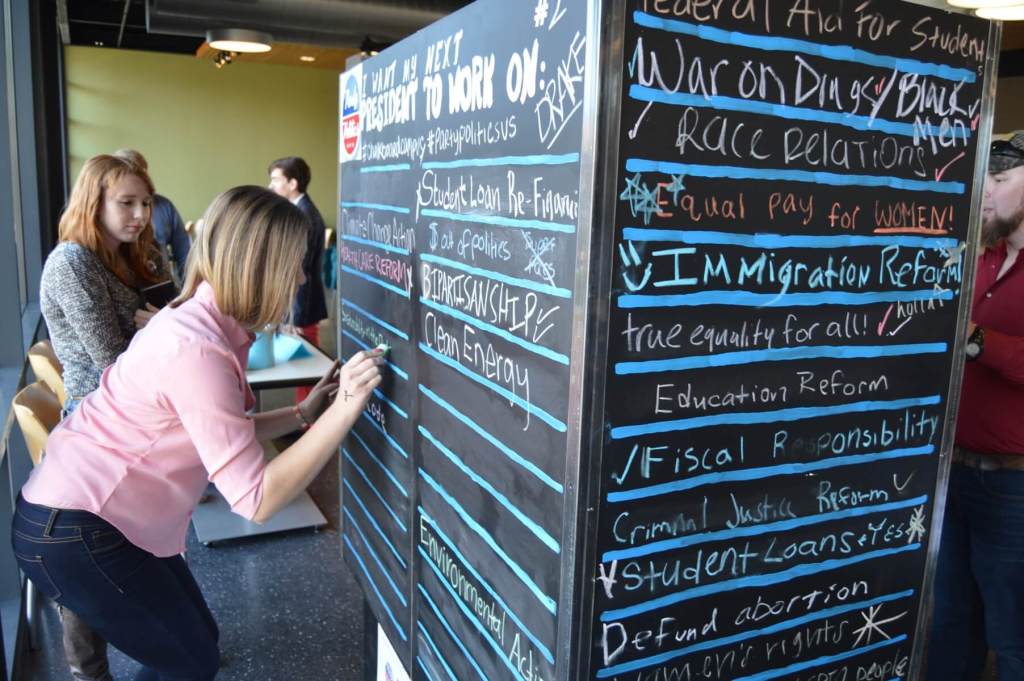 I WANT MY NEXT
PRESIDENT TO WORK ON:
#chalkboardcampus #partypoliticsvs
#2
DRAKE
Party
Politics
Climate Change Action
HEALTH CARE REFORM
Code
Student Loan Re-Financi
$ out of politics
BIPARTISANSHIP
Clean Energy
Environmental Acti
Federal Aid For Student
War on Drugs/Black
Men
Race Relations
Equal pay for WOMEN!
Immigration Reform
true equality for all! holla
Education Reform
Fiscal Responsibility
Criminal Justice Reform
Student Loans YES
Defund abortion
women's rights
people